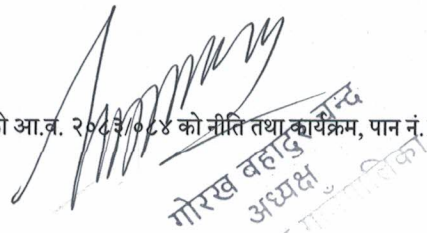 ो आ.व. २०८३/०८४ को नीति तथा कार्यक्रम, पान नं.
गोरख बहादुर चन्द
अध्यक्ष